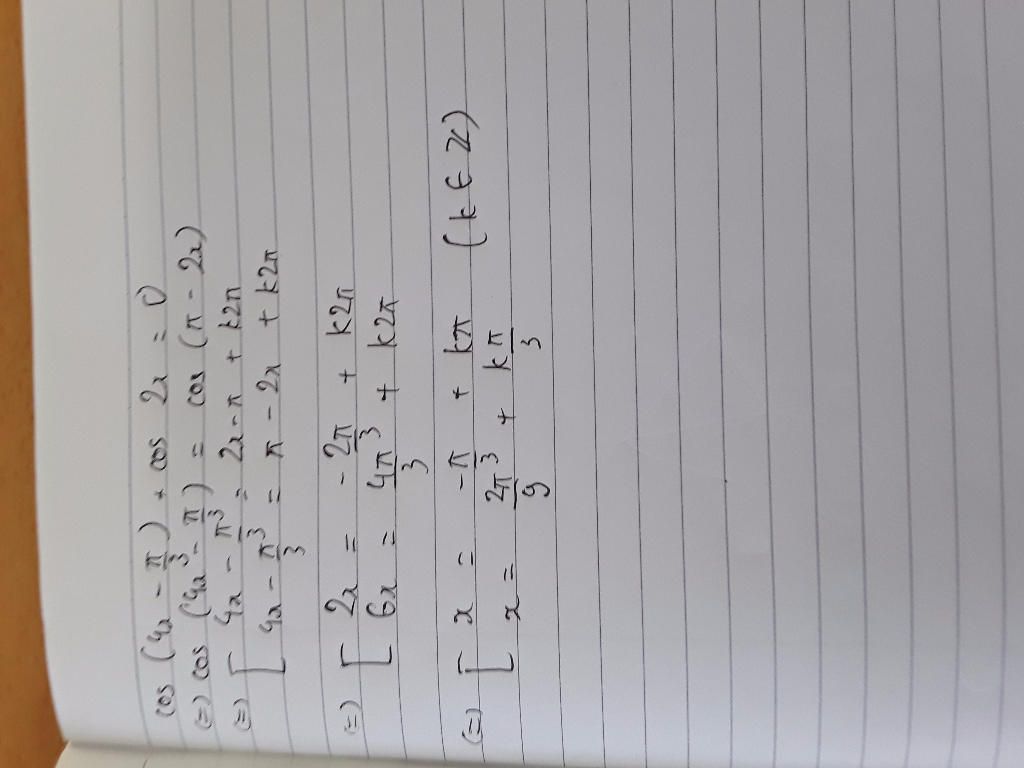 cos (4x - π/3) + cos 2x = 0
(=) cos (4x - π/3) = cos (π - 2x)
(=) [ 4x - π/3 = 2x - π + k2π
4x - π/3 = π - 2x + k2π
(=) [ 2x = - 2π/3 + k2π
6x = 4π/3 + k2π
(=) [ x = - π/3 + kπ (k ∈ Z)
x = 2π/9 + k π/3